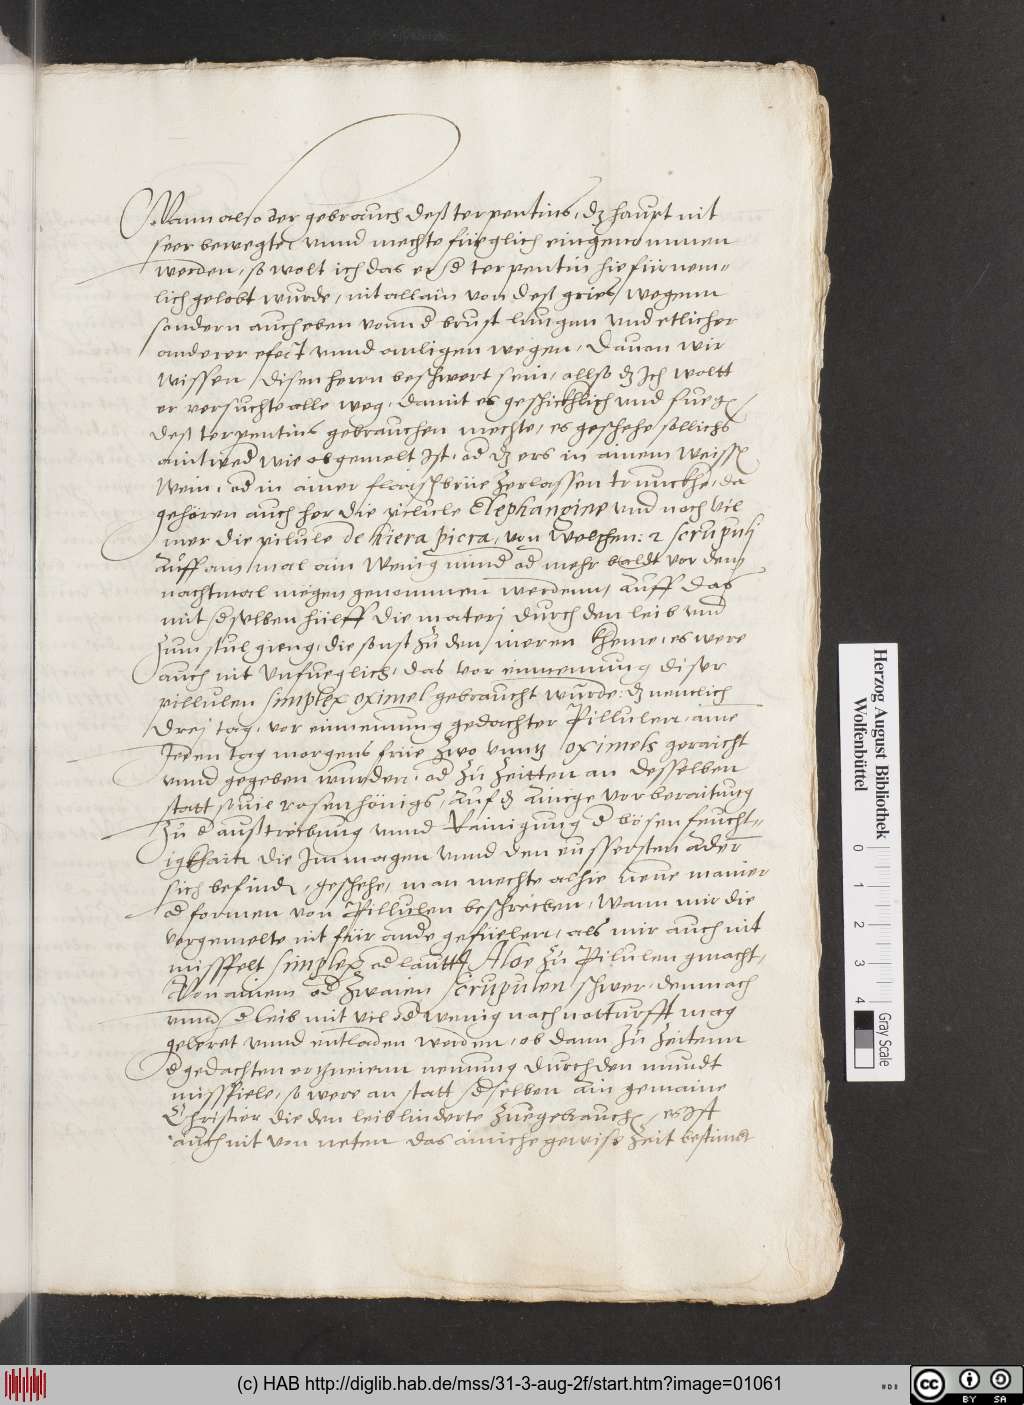 Wann also der gebrauch deß terpentins, dz haupt nit
seer bewegte, vnnd mechte fueglich eingenommen
werden, so wolt ich das er der terpentin hie fürnem=
lich gelobt wurde, nit allain von deß gries wegenn
sondern auch eben vonn d brust lungen vnd etlicher
anderer efect vnnd anligen wegen, Dauon wir
wissen disen herrn beschwert sein, allso dz Ich wollt
er versuchte alle weg, damit es geschickhlich vnd fueg
deß terpentins gebrauchen mechte, es geschehe sollichs
aintwed wie obgemelt Ist, od dz ers in ainem weissen
Wein, od in ainer flaischbrüe zerlassen trunckhe, da
gehören auch her die pilule Elephangine vnd noch vil
mer die pilule de hiera picra, von welchen: 2 scrupulj
auff ain mal ain wenig mind od mehr baldt vor dem
nachtmal megen genommen werdenn, auff das
mit derselben hülff die materj durch den leib vnd
zum stul gieng, die sonst zu den nieren kheme, es were
auch nit vnfueglich, das vor einnemung diser
pillulen simplex oximel gebraucht wurde: dz nemlich
Drej tag, vor einnemung gedachter Pillulen, aine
Jeden tag morgens frue zwo vnntz oximels geraicht
vnnd gegeben wurden, od zu zeitten an desselben
statt souil rosenhönigs, auf dz ainige vorberaitung
zu d außtreibung vnnd Rainigung d bösen feucht=
igkhait die Im magen vnnd den eussersten ader
sich befind, geschehe, man mechte alhie neue manier
od formen von Pillulen beschreiben, wann mir die
vorgemelte nit für ande gefielen, als mir auch nit
missfelt simplex od lautter Aloe zu Pilulen gmacht,
Von ainem od zwaien scrupulen schwer, dennach
vnnd d leib mit vil od wenig nach notturfft mag
geleret vnnd entladen werden, ob dann zu zeitenn
d gedachten ertzneienn nemung durch den mundt
missfiele, so were an statt derselben ain gemaine
Christier die den leib linderte zuegebrauchen, es Ist
auch nit von neten das ainiche gewise zeit bestimbt
Herzog August Bibliothek
Wolfenbüttel
0 1 2 3 4
Gray Scale
(c) HAB http://diglib.hab.de/mss/31-3-aug-2f/start.htm?image=01061
cc BY SA